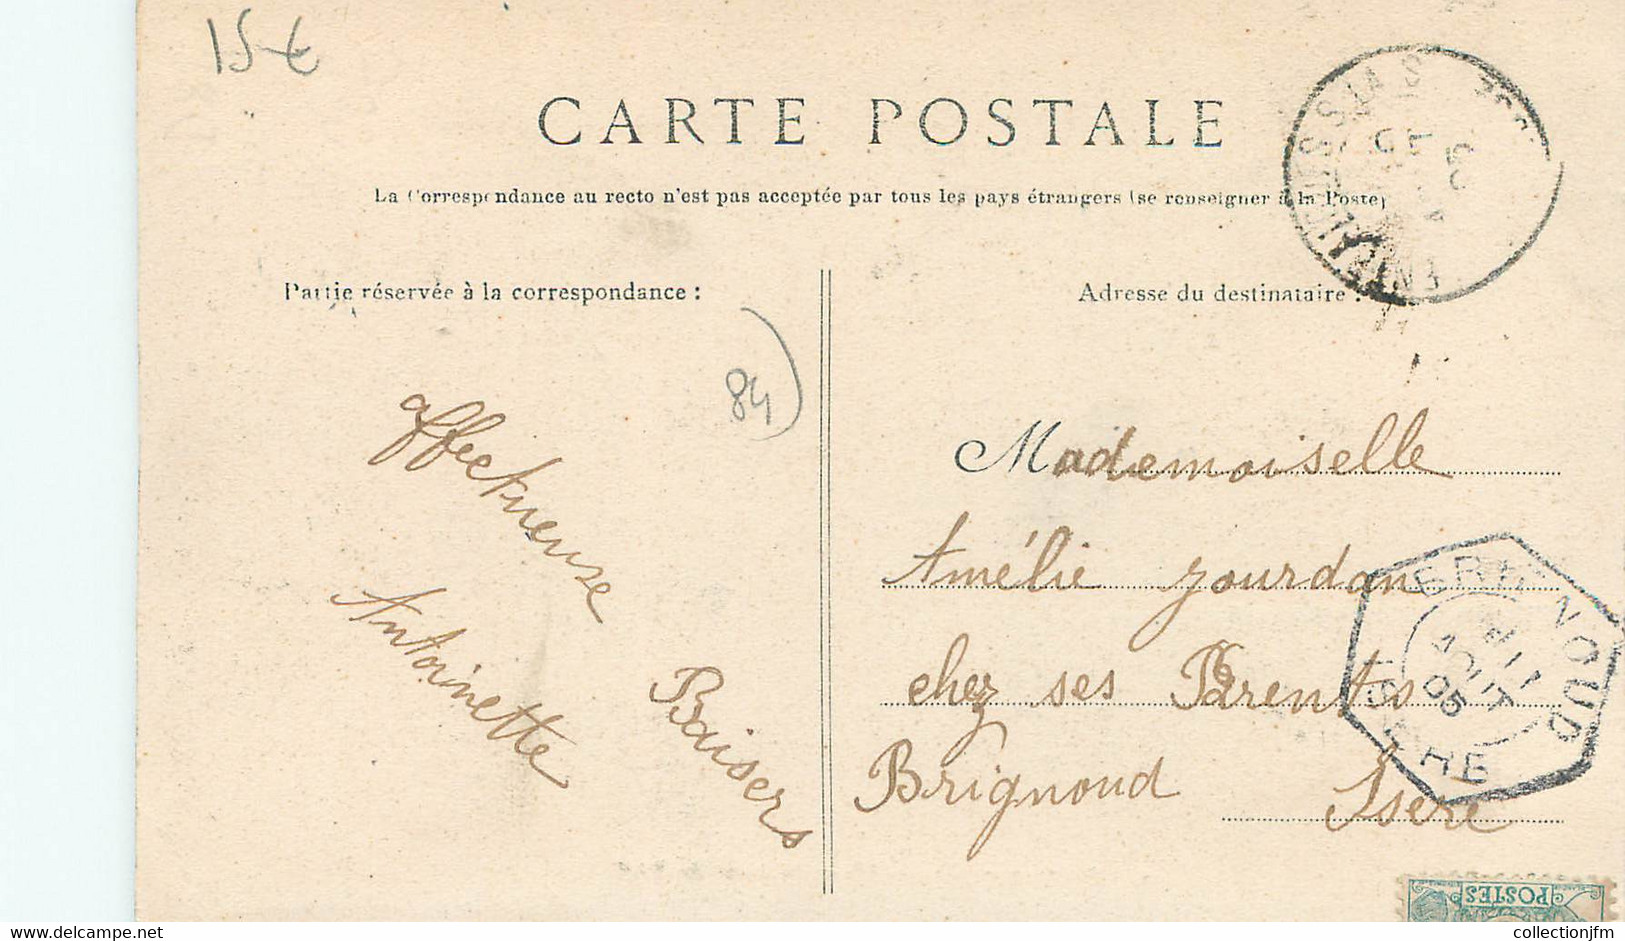 15 €
CARTE POSTALE
La Correspondance au recto n'est pas acceptée par tous les pays étrangers (se renseigner à la Poste)
Partie réservée à la correspondance :
Adresse du destinataire :
84
affectueuse
Baisers
Antoinette
Mademoiselle
Amélie Jourdan
chez ses Parents
Brignoud Isère
BRIGNOUD
AOUT
05
ISERE
POSTES
collectionjfm